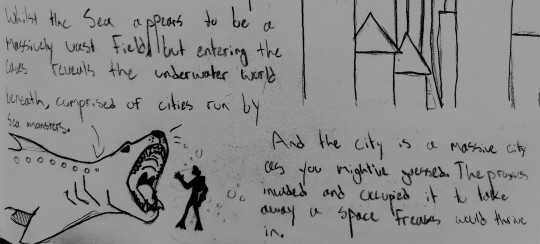 Whilst the Sea appears to be a
Massively vast Field, but entering the
reveals the underwater world
beneath, comprised of cities run by
Sea monsters.
And the city is a massive city
as you might've guessed. The
invaded and occupied it to take
away a space Freaks would thrive
in.